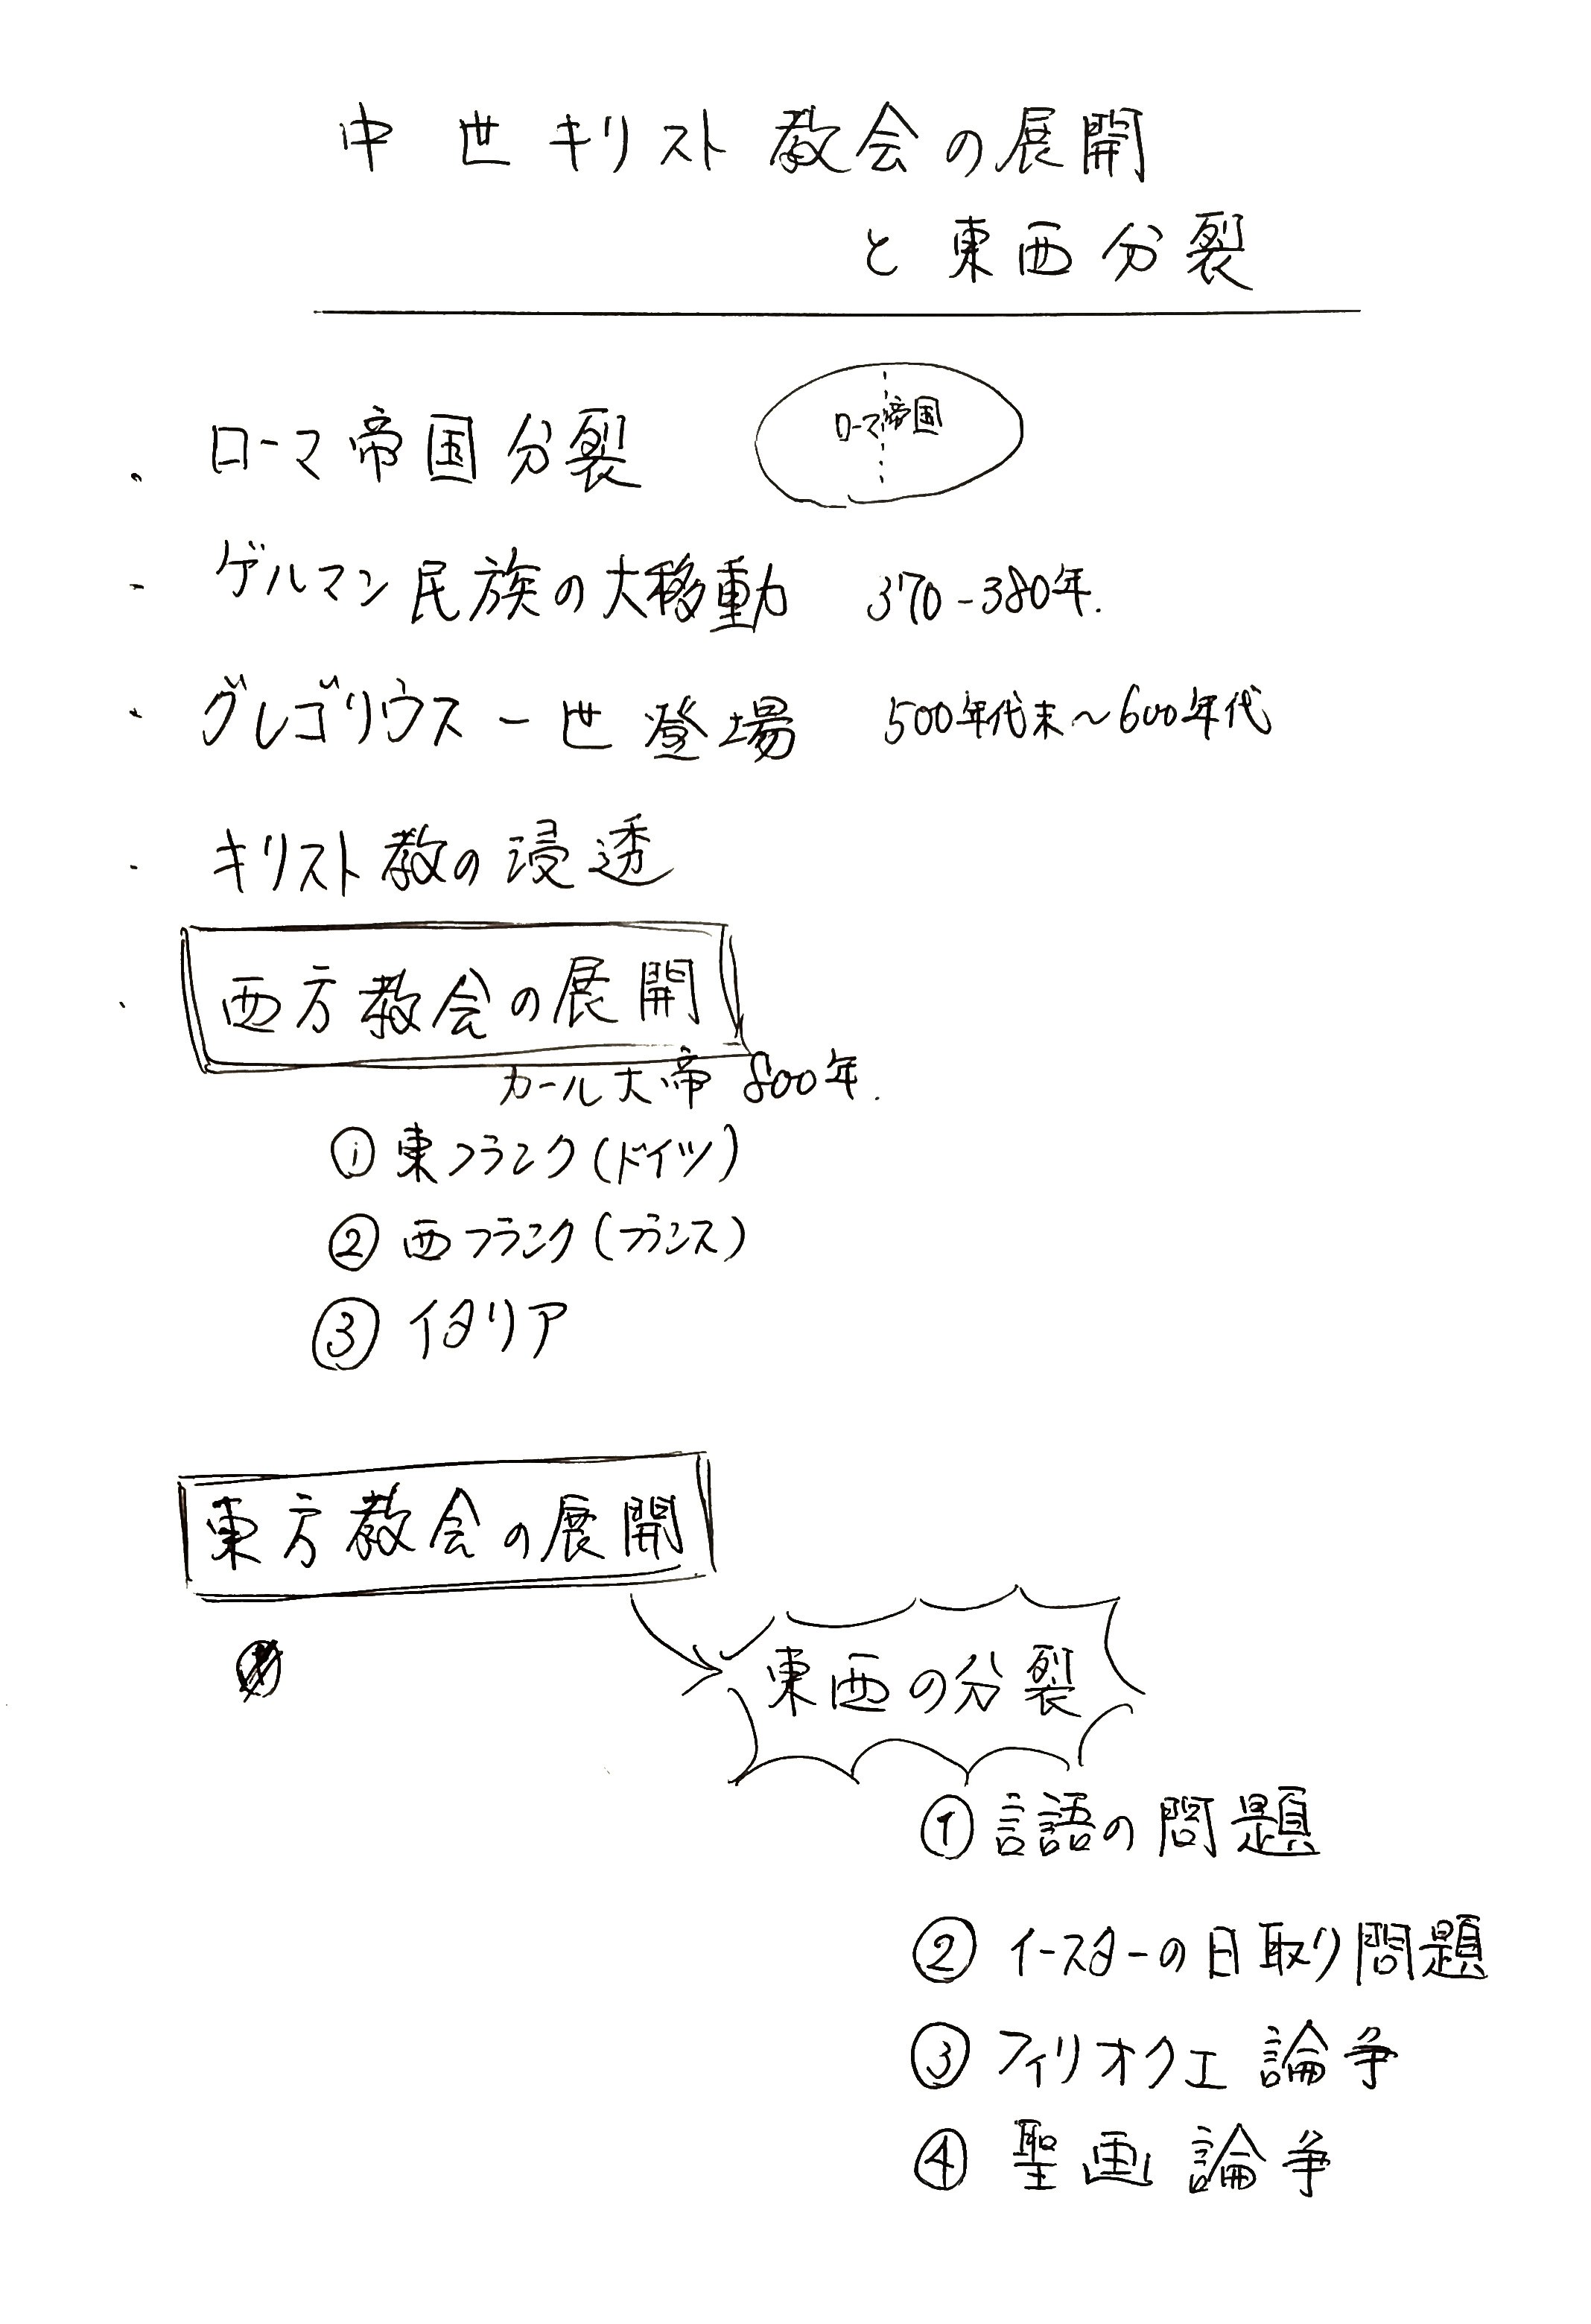 中世キリスト教会の展開
と東西分裂
・ローマ帝国分裂
ローマ帝国
・ゲルマン民族の大移動 370-380年.
・グレゴリウス一世登場 500年代末～600年代
・キリスト教の浸透
・西方教会の展開
カール大帝 800年.
① 東フランク(ドイツ)
② 西フランク(フランス)
③ イタリア
東方教会の展開
東西の分裂
① 言語の問題
② イースターの日取り問題
③ フィリオクエ論争
④ 聖画論争